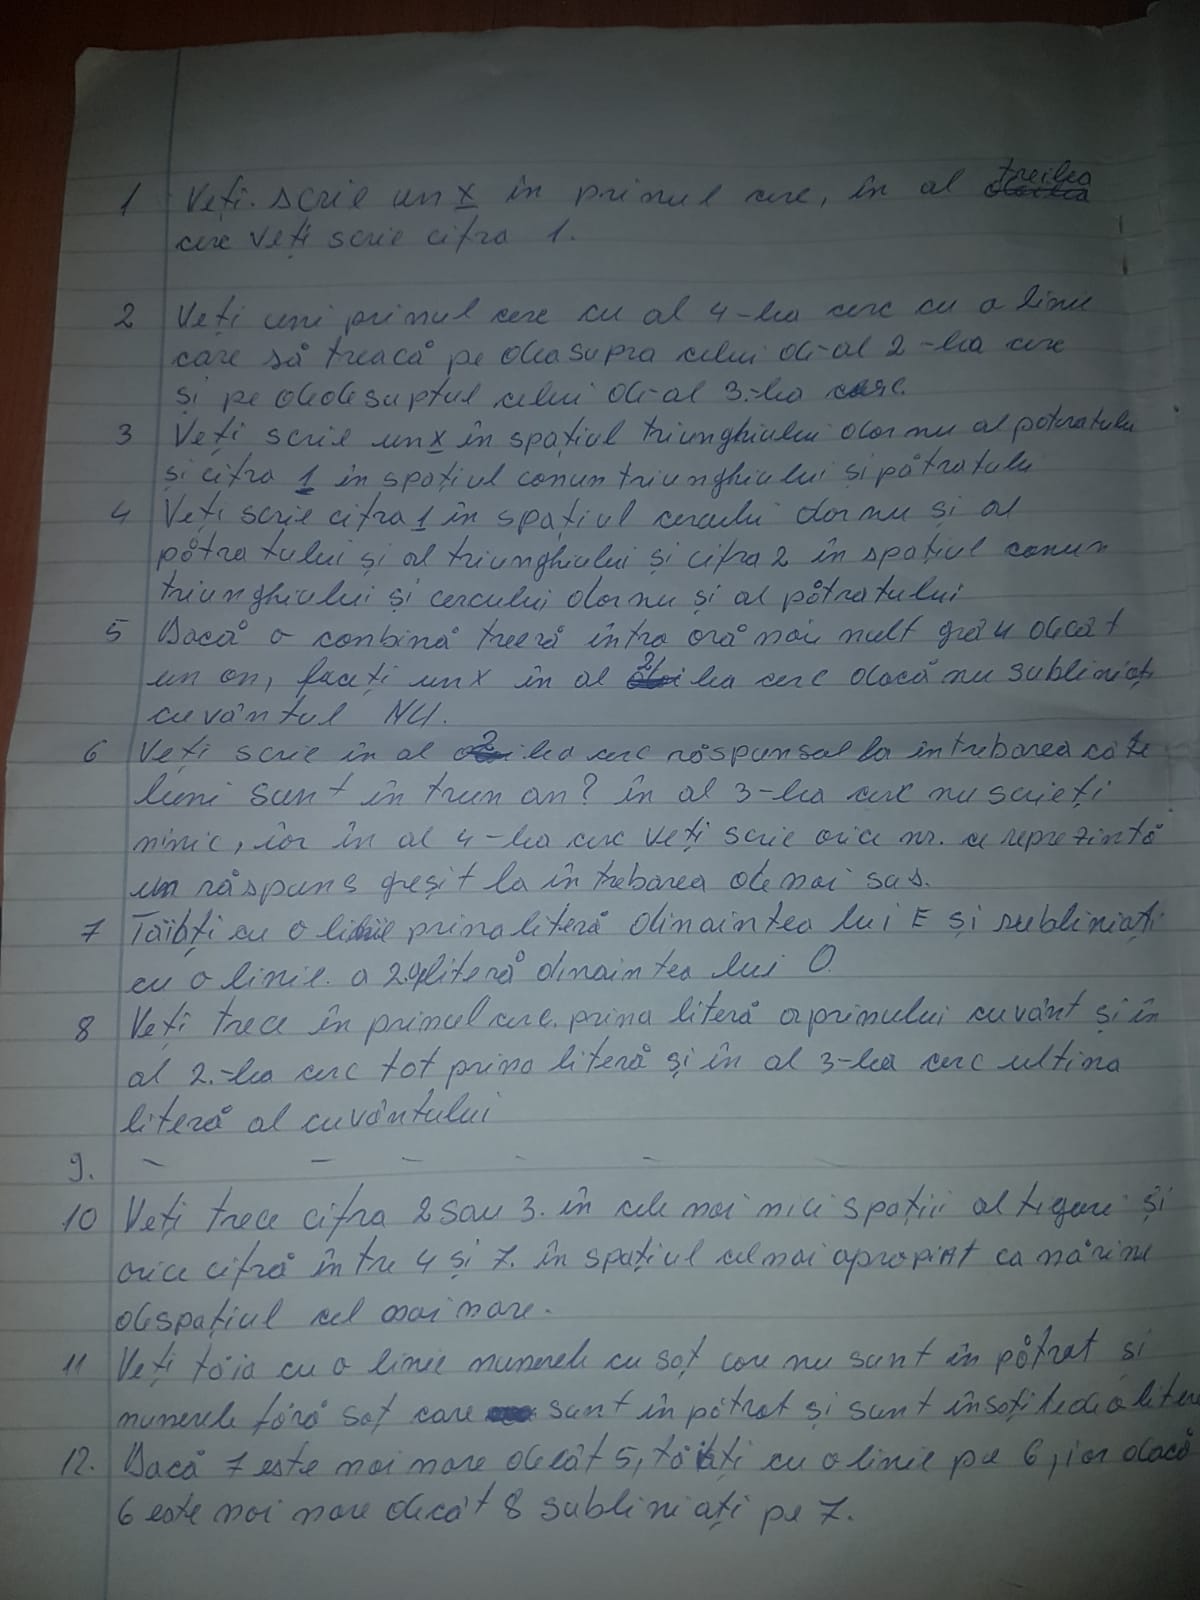 1 Veți scrie un x în primul cerc, în al treilea
cerc veți scrie cifra 1.
2 Veți uni primul cerc cu al 4-lea cerc cu o linie
care să treacă pe deasupra celui de-al 2-lea cerc
și pe dedesuptul celui de-al 3-lea cerc.
3 Veți scrie un x în spațiul triunghiului dar nu al patratului
și cifra 1 în spațiul comun triunghiului și pătratulu
4 Veți scrie cifra 1 în spațiul cercului dar nu și al
pătratului și al triunghiului și cifra 2 în spațiul comun
triunghiului și cercului dar nu și al pătratului
5 Dacă o combină treeră intro oră mai mult grâu decât
un om, faceți un x în al 2 lea cerc dacă nu subliniați
cuvântul NU.
6 Veți scrie în al 2 lea cerc răspunsul la întrebarea câte
luni sunt în trun an? în al 3-lea cerc nu scrieți
nimic, iar în al 4-lea cerc veți scrie orice nr. ce reprezintă
un răspuns greșit la întrebarea de mai sus.
7 Tăiați cu o linie prima literă dinaintea lui E și subliniați
cu o linie a 2a literă dinaintea lui O.
8 Veți trece în primul cerc prima literă a primului cuvânt și în
al 2-lea cerc tot prima literă și în al 3-lea cerc ultima
literă al cuvântului
9. - - - - -
10 Veți trece cifra 2 sau 3. în cele mai mici spații al figuri și
orice cifră între 4 și 7. în spațiul cel mai apropiat ca mărime
de spațiul cel mai mare.
11 Veți tăia cu o linie numerele cu soț care nu sunt în pătrat și
numerele fără soț care sunt în pătrat și sunt însoțite de o litere
12. Dacă 7 este mai mare decât 5, tăiați cu o linie pe 6, iar dacă
6 este mai mare decât 8 subliniați pe 7.